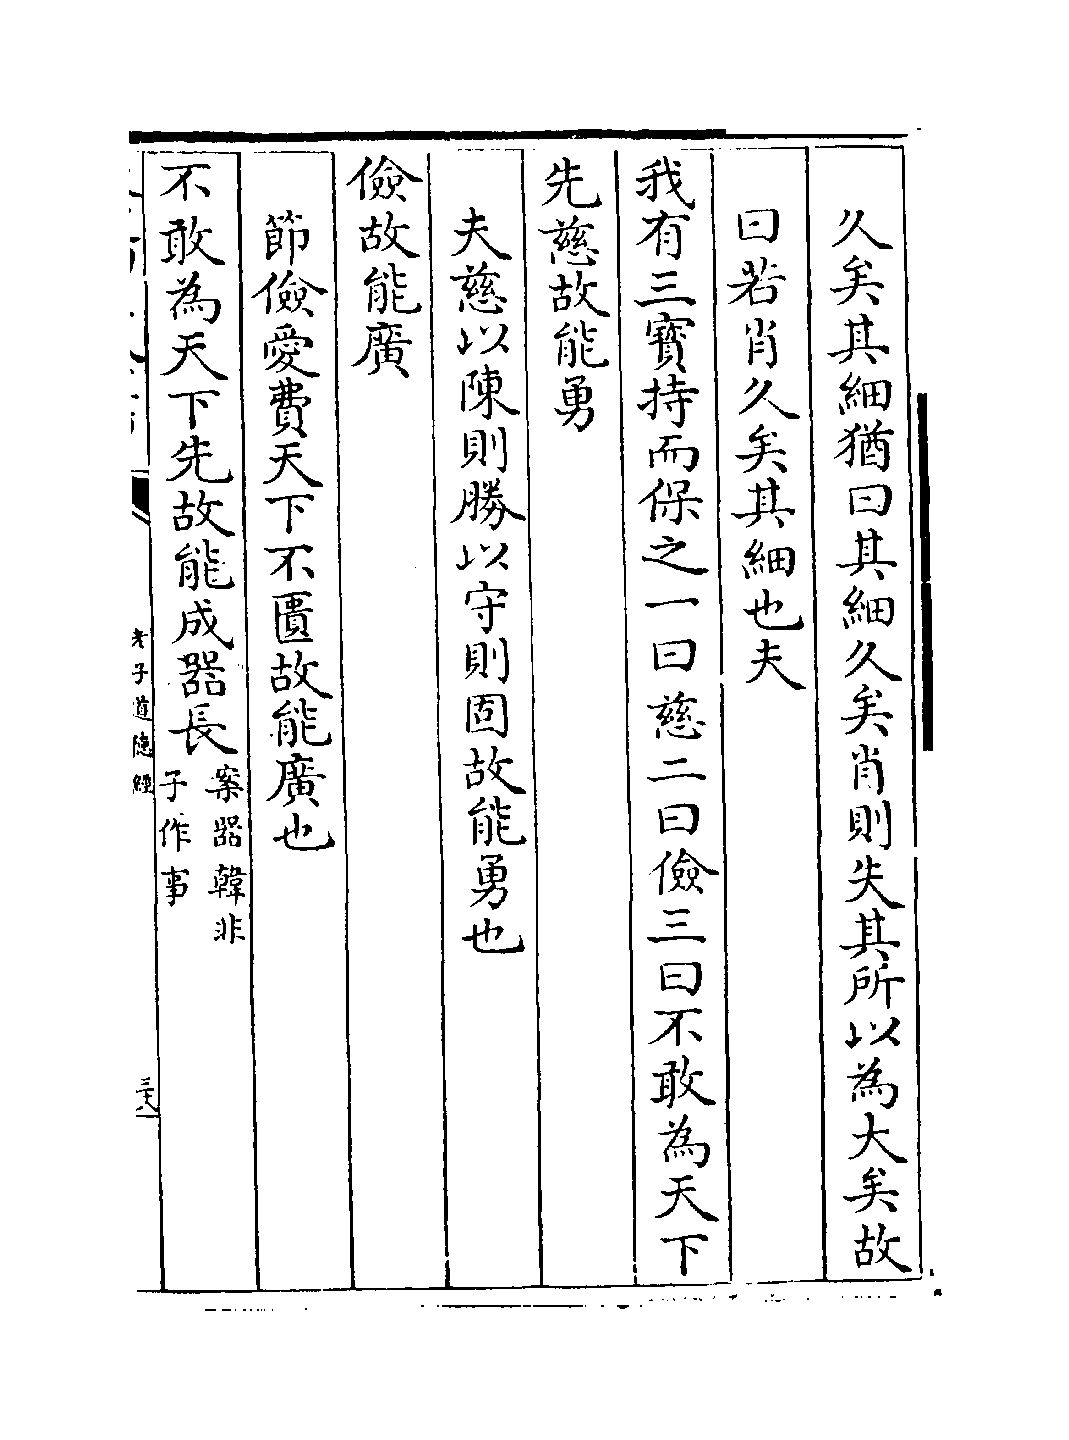 久矣其細猶曰其細久矣肖則失其所以為大矣故
曰若肖久矣其細也夫
我有三寶持而保之一曰慈二曰儉三曰不敢為天下
先慈故能勇
夫慈以陳則勝以守則固故能勇也
儉故能廣
節儉愛費天下不匱故能廣也
不敢為天下先故能成器長
案器韓非
子作事
老子道德經